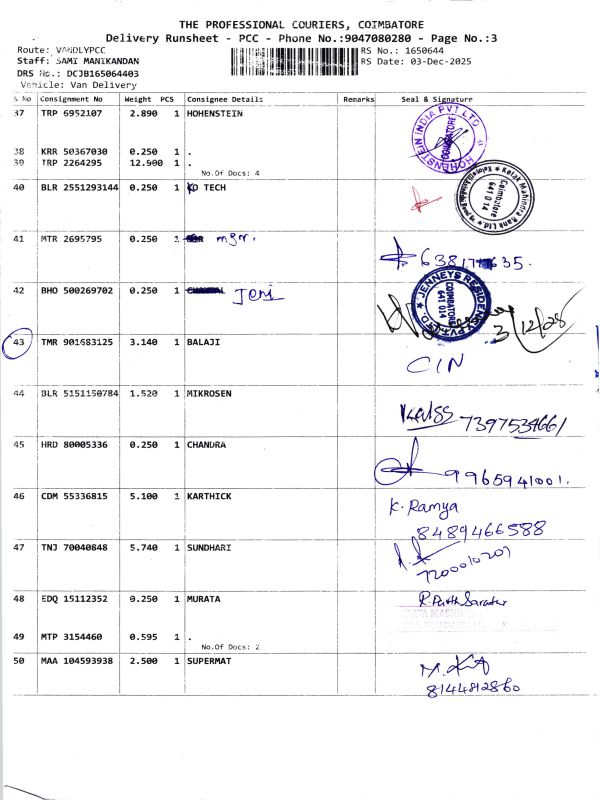 THE PROFESSIONAL COURIERS, COIMBATORE
Delivery Runsheet - PCC - Phone No.:9047080280 - Page No.:3
Route: VANDLYPCC RS No.: 1650644
Staff: SAMI MANIKANDAN RS Date: 03-Dec-2025
DRS No.: DCJB165064403
Vehicle: Van Delivery
S No Consignment No Weight PCS Consignee Details Remarks Seal & Signature
37 TRP 6952107 2.890 1 HOHENSTEIN
HOHENSTEIN INDIA PVT LTD
COIMBATORE
38 KRR 50367030 0.250 1 .
39 TRP 2264295 12.900 1 .
No.Of Docs: 4
40 BLR 2551293144 0.250 1 KO TECH
Kotak Mahindra Bank Ltd.
Coimbatore
641 014
41 MTR 2695795 0.250 1 mgr.
42 BHO 500269702 0.250 1 Jeni
JENNEYS RESIDENCY PVT LTD.
COIMBATORE
641 014
3/12/25
43 TMR 901583125 3.140 1 BALAJI
CIN
44 BLR 5151150784 1.520 1 MIKROSEN
7397534661
45 HRD 80005336 0.250 1 CHANDRA
9965941001.
46 CDM 55336815 5.100 1 KARTHICK
K. Ramya
8489466588
47 TNJ 70040848 5.740 1 SUNDHARI
7200010207
48 EDQ 15112352 0.250 1 MURATA
R. Parth Sarathy
49 MTP 3154460 0.595 1 .
No.Of Docs: 2
50 MAA 104593938 2.500 1 SUPERMAT
8144812860